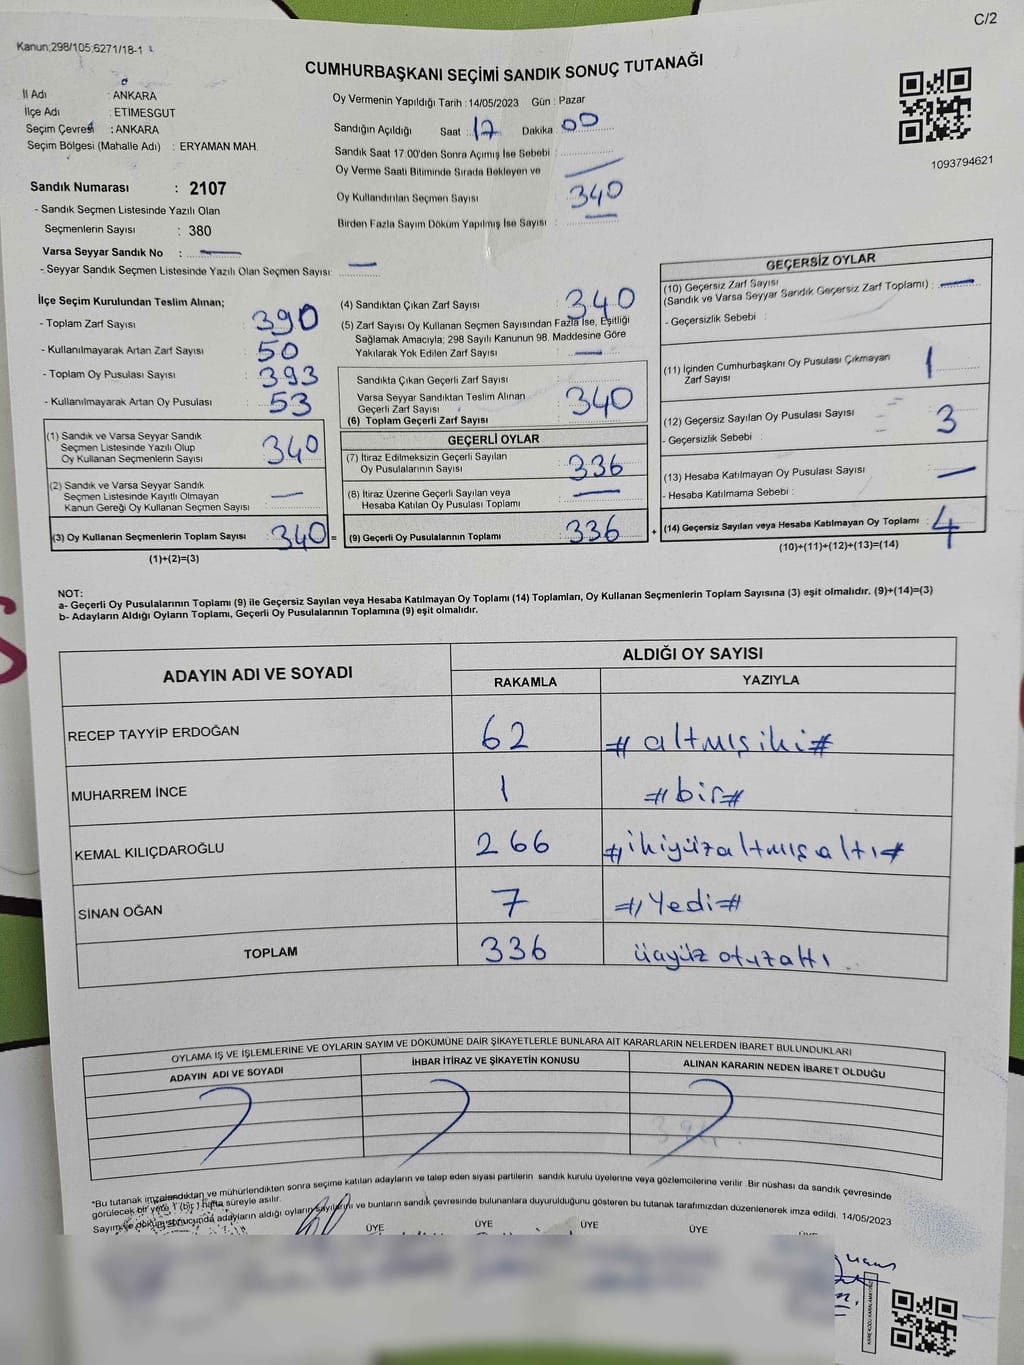 C/2
Kanun;298/105;6271/18-1
CUMHURBAŞKANI SEÇİMİ SANDIK SONUÇ TUTANAĞI
İl Adı : ANKARA
İlçe Adı : ETİMESGUT
Seçim Çevresi : ANKARA
Seçim Bölgesi (Mahalle Adı) : ERYAMAN MAH.
Sandık Numarası : 2107
- Sandık Seçmen Listesinde Yazılı Olan
Seçmenlerin Sayısı : 380
Varsa Seyyar Sandık No :
- Seyyar Sandık Seçmen Listesinde Yazılı Olan Seçmen Sayısı:
Oy Vermenin Yapıldığı Tarih : 14/05/2023 Gün : Pazar
Sandığın Açıldığı Saat : 17 Dakika : 00
Sandık Saat 17.00'den Sonra Açımış İse Sebebi :
Oy Verme Saati Bitiminde Sırada Bekleyen ve
Oy Kullandırılan Seçmen Sayısı : 340
Birden Fazla Sayım Döküm Yapılmış İse Sayısı :
1093794621
İlçe Seçim Kurulundan Teslim Alınan;
- Toplam Zarf Sayısı : 390
- Kullanılmayarak Artan Zarf Sayısı : 50
- Toplam Oy Pusulası Sayısı : 393
- Kullanılmayarak Artan Oy Pusulası : 53
(1) Sandık ve Varsa Seyyar Sandık
Seçmen Listesinde Yazılı Olup
Oy Kullanan Seçmenlerin Sayısı : 340
(2) Sandık ve Varsa Seyyar Sandık
Seçmen Listesinde Kayıtlı Olmayan
Kanun Gereği Oy Kullanan Seçmen Sayısı :
(3) Oy Kullanan Seçmenlerin Toplam Sayısı : 340 =
(1)+(2)=(3)
(4) Sandıktan Çıkan Zarf Sayısı : 340
(5) Zarf Sayısı Oy Kullanan Seçmen Sayısından Fazla İse, Eşitliği
Sağlamak Amacıyla; 298 Sayılı Kanunun 98. Maddesine Göre
Yakılarak Yok Edilen Zarf Sayısı :
Sandıkta Çıkan Geçerli Zarf Sayısı :
Varsa Seyyar Sandıktan Teslim Alınan
Geçerli Zarf Sayısı :
(6) Toplam Geçerli Zarf Sayısı : 340
GEÇERLİ OYLAR
(7) İtiraz Edilmeksizin Geçerli Sayılan
Oy Pusulalarının Sayısı : 336
(8) İtiraz Üzerine Geçerli Sayılan veya
Hesaba Katılan Oy Pusulası Toplamı :
(9) Geçerli Oy Pusulalarının Toplamı : 336 +
GEÇERSİZ OYLAR
(10) Geçersiz Zarf Sayısı
(Sandık ve Varsa Seyyar Sandık Geçersiz Zarf Toplamı) :
- Geçersizlik Sebebi :
(11) İçinden Cumhurbaşkanı Oy Pusulası Çıkmayan
Zarf Sayısı : 1
(12) Geçersiz Sayılan Oy Pusulası Sayısı : 3
- Geçersizlik Sebebi :
(13) Hesaba Katılmayan Oy Pusulası Sayısı :
- Hesaba Katılmama Sebebi :
(14) Geçersiz Sayılan veya Hesaba Katılmayan Oy Toplamı : 4
(10)+(11)+(12)+(13)=(14)
NOT:
a- Geçerli Oy Pusulalarının Toplamı (9) ile Geçersiz Sayılan veya Hesaba Katılmayan Oy Toplamı (14) Toplamları, Oy Kullanan Seçmenlerin Toplam Sayısına (3) eşit olmalıdır. (9)+(14)=(3)
b- Adayların Aldığı Oyların Toplamı, Geçerli Oy Pusulalarının Toplamına (9) eşit olmalıdır.
ADAYIN ADI VE SOYADI
ALDIĞI OY SAYISI
RAKAMLA YAZIYLA
RECEP TAYYİP ERDOĞAN 62 # altmışiki #
MUHARREM İNCE 1 # bir #
KEMAL KILIÇDAROĞLU 266 # ikiyüzaltmışaltı #
SİNAN OĞAN 7 # Yedi #
TOPLAM 336 üçyüz otuzaltı
OYLAMA İŞ VE İŞLEMLERİNE VE OYLARIN SAYIM VE DÖKÜMÜNE DAİR ŞİKAYETLERLE BUNLARA AİT KARARLARIN NELERDEN İBARET BULUNDUKLARI
ADAYIN ADI VE SOYADI
İHBAR İTİRAZ VE ŞİKAYETİN KONUSU
ALINAN KARARIN NEDEN İBARET OLDUĞU
*Bu tutanak imzalandıktan ve mühürlendikten sonra seçime katılan adayların ve talep eden siyasi partilerin sandık kurulu üyelerine veya gözlemcilerine verilir. Bir nüshası da sandık çevresinde
görülecek bir yere 1 (bir) hafta süreyle asılır.
Sayım ve döküm sonucunda adayların aldığı oyların sayılarını ve bunların sandık çevresinde bulunanlara duyurulduğunu gösteren bu tutanak tarafımızdan düzenlenerek imza edildi. 14/05/2023
ÜYE ÜYE ÜYE ÜYE